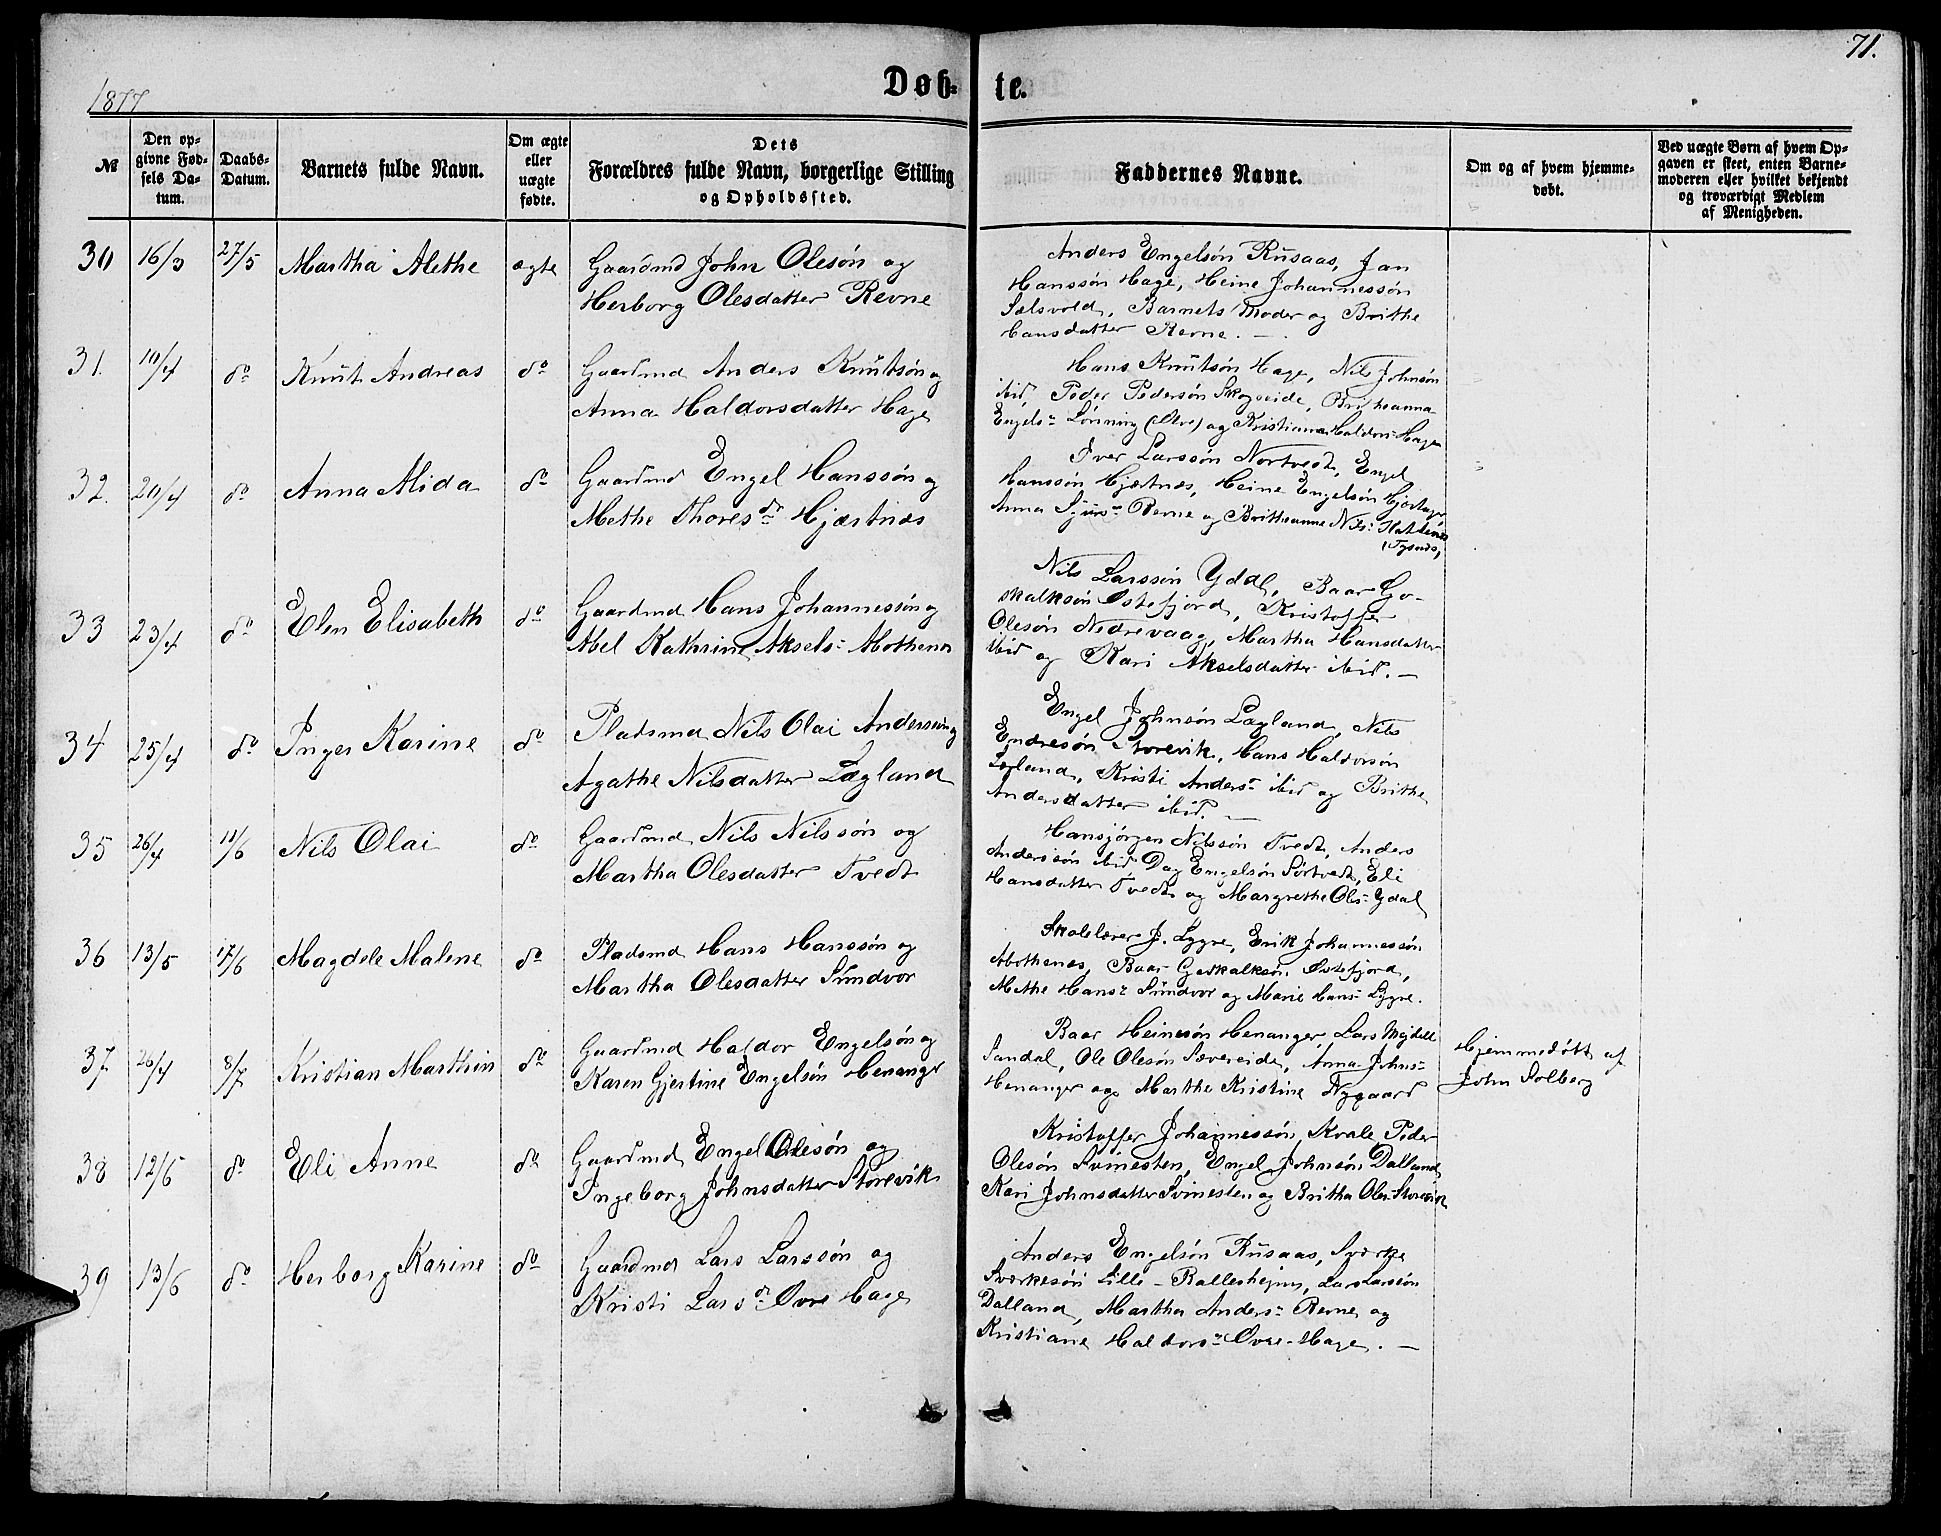 71.
1877
Døb-
te.
№
Den op-
givne Fød-
sels Da-
tum.
Daabs-
Datum.
Barnets fulde Navn.
Om ægte
eller
uægte
fødte.
Dets
Forældres fulde Navn, borgerlige Stilling
og Opholdssted.
Faddernes Navne.
Om og af hvem hjemme-
døbt.
Ved uægte Børn af hvem Op-
gaven er skeet, enten Barne-
moderen eller hvilket bekjendt
og troværdigt Medlem
af Menigheden.
30 16/3 27/5 Martha Alethe ægte
Gaardmd John Olesøn og
Herborg Olesdatter Revne
Anders Engelsøn Rusaas, Jan
Hanssøn Hage, Heine Johannessøn
Sælsvold, Barnets Moder og Brithe
Hansdatter Revne. —
31. 10/4 do Knut Andreas do
Gaardmd Anders Knutsøn og
Anna Haldorsdatter Hage
Hans Knutsøn Hage, Nils Johnsøn
ibid, Peder Pedersøn Skogseide, Britheanna
Engels- Lønning (Øvre) og Kristiane Haldors- Hage
32. 20/4 do Anna Alida do
Gaardmd Engel Hanssøn og
Methe Thoresdr Hjærtnæs
Iver Larssøn Nortvedt, Engel
Hanssøn Hjærtnæs, Heine Engelsøn
Anna Sjurs- Revne og Britheanne Nils-
(Tysnæs)
33 23/4 do Elen Elisabeth do
Gaardmd Hans Johannessøn og
Abel Kathrine Aksels- Mothenes
Nils Larssøn Yddl, Baar Go-
skalksøn Østefjord, Kristoffer
Olesøn Nedrevaag, Martha Hansdatter
ibid og Kari Akselsdatter ibid. —
34 25/4 do Inger Karine do
Pladsmd Nils Olai Anderssøn og
Agathe Nilsdatter Lægland
Engel Johnsøn Lægland, Nils
Endresøn Storevik, Hans Haldorsøn
Lægland, Kristi Anders- ibid og Brithe
Andersdatter ibid. —
35 26/4 11/6 Nils Olai do
Gaardmd Nils Nilssøn og
Martha Olesdatter Tvedt
Hansjørgen Nilssøn Tvedt, Anders
Anderssøn ibid Dag Engelsøn Sørtvedt, Eli
Hansdatter Tvedt og Margrethe Ols- Ydal
36 13/5 17/6 Magdele Malene do
Pladsmd Hans Hanssøn og
Martha Olesdatter Sundvor
Skolelærer J. Lygre, Erik Johannessøn
Mothenes, Baar Goskalksøn Østefjord,
Methe Hans- Sundvor og Marie Hans- Lygre.
37 26/4 8/7 Kristian Marthin do
Gaardmd Haldor Engelsøn og
Karen Gjertine Engelsøn Henanger
Baar Heinesøn Henanger, Lars Mejdell
Sandal, Ole Olesøn Sævereide, Anna Johns-
Henanger og Marthe Kristine Nygaard
Hjemmedøbt af
John Solberg
38 12/6 do Eli Anne do
Gaardmd Engel Olesøn og
Ingeborg Johnsdatter Storevik
Kristoffer Johannessøn Kvale, Peder
Olesøn Svinesten, Engel Johnsøn Dalland,
Kari Johnsdatter Svinesten og Britha Oles- Storevik
39 13/6 do Herborg Karine do
Gaardmd Lars Larssøn og
Kristi Larsdr Øvre Hage
Anders Engelsøn Rusaas, Sværke
Sværkesøn Lille-Ballesheim, Lars Larssøn
Dalland, Martha Anders- Revne og
Kristiane Haldors- Øvre-Hage. —